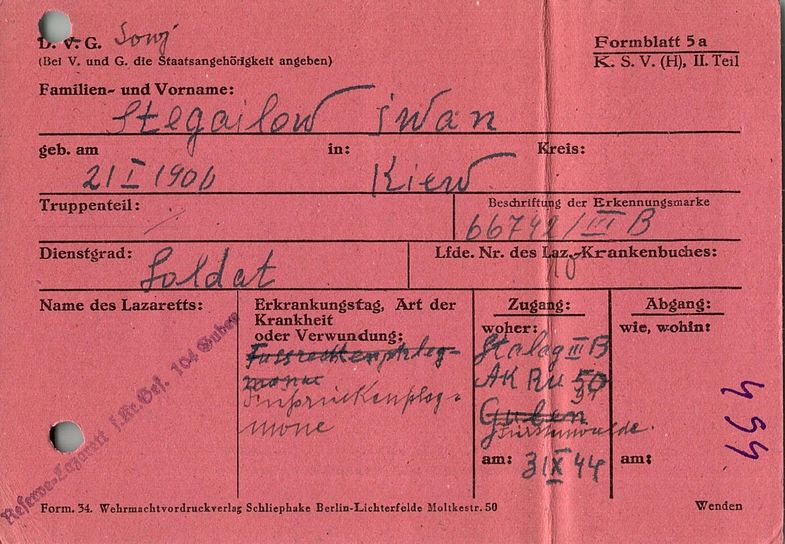 D. V. G. Sowj
Formblatt 5a
(Bei V. und G. die Staatsangehörigkeit angeben)
K. S. V. (H), II. Teil
Familien- und Vorname:
Stegailow iwan
geb. am in: Kreis:
21 I 1900 Kiew
Truppenteil:
Beschriftung der Erkennungsmarke
66742/III B
Dienstgrad: Soldat
Lfde. Nr. des Laz.-Krankenbuches:
Name des Lazaretts:
Reserve-Lazarett f. Kr. Gef. 104 Guben
Erkrankungstag, Art der
Krankheit
oder Verwundung:
Fussrückenphleg-
mone
Fußrückenphleg-
mone
Zugang:
woher:
Stalag III B
AK Ru 50
Guben
Fürstenwalde.
am: 31 X 44
Abgang:
wie, wohin:
am:
499
Form. 34. Wehrmachtvordruckverlag Schliephake Berlin-Lichterfelde Moltkestr. 50
Wenden